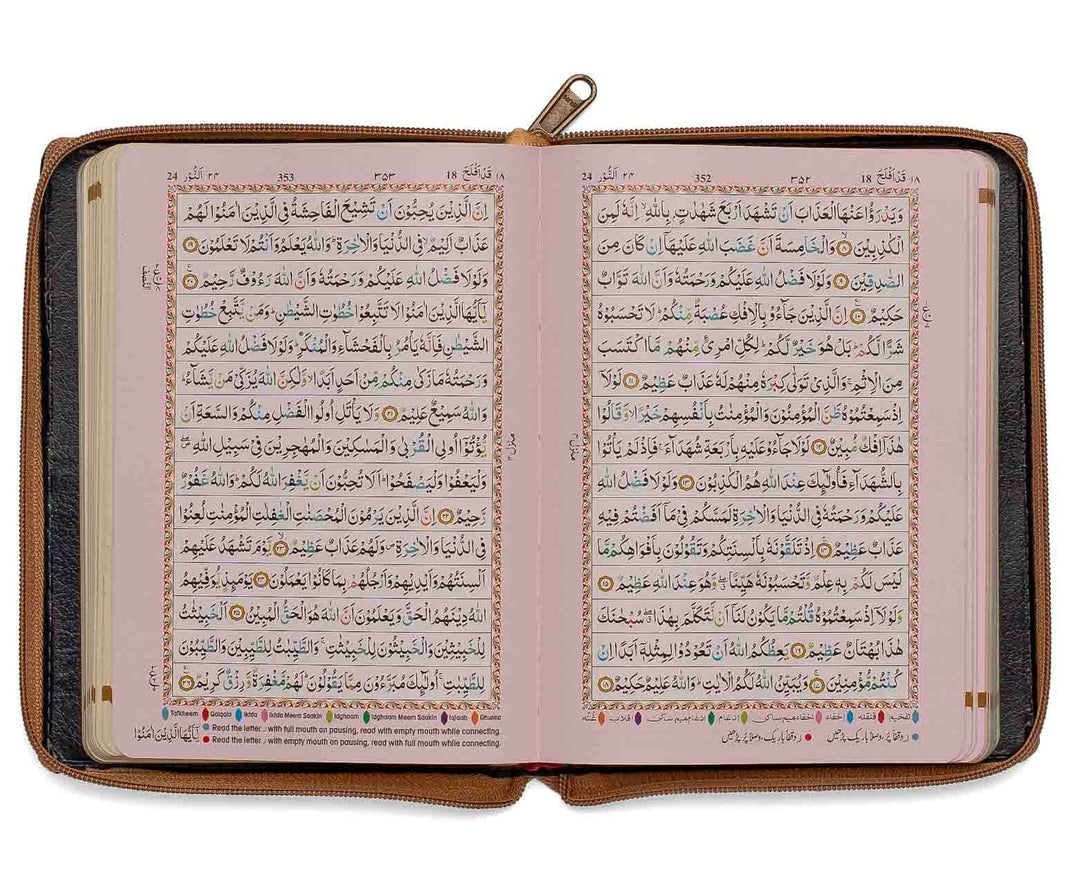 ١٨ قَدۡ اَفۡلَحَ 18 ٣٥٢ 352 ٢٤ اَلنُّوۡر 24
وَيَدۡرَؤُا عَنۡهَا الۡعَذَابَ اَنۡ تَشۡهَدَ اَرۡبَعَ شَهٰدٰتٍۢ بِاللّٰهِ‌ۙ اِنَّهٗ لَمِنَ
الۡكٰذِبِيۡنَۙ‏ ﴿۸﴾ وَالۡخَـامِسَةَ اَنَّ غَضَبَ اللّٰهِ عَلَيۡهَاۤ اِنۡ كَانَ مِنَ
الصّٰدِقِيۡنَ‏ ﴿۹﴾ وَلَوۡلَا فَضۡلُ اللّٰهِ عَلَيۡكُمۡ وَرَحۡمَتُهٗ وَاَنَّ اللّٰهَ تَوَّابٌ
حَكِيۡمٌ‏ ﴿۱۰﴾ اِنَّ الَّذِيۡنَ جَآءُوۡ بِالۡاِفۡكِ عُصۡبَةٌ مِّنۡكُمۡ‌ؕ لَا تَحۡسَبُوۡهُ
شَرًّا لَّـكُمۡ‌ؕ بَلۡ هُوَ خَيۡرٌ لَّـكُمۡ‌ؕ لِكُلِّ امۡرِىٴٍ مِّنۡهُمۡ مَّا اكۡتَسَبَ
مِنَ الۡاِثۡمِ‌ۚ وَالَّذِىۡ تَوَلّٰى كِبۡرَهٗ مِنۡهُمۡ لَهٗ عَذَابٌ عَظِيۡمٌ‏ ﴿۱۱﴾ لَوۡلَاۤ
اِذۡ سَمِعۡتُمُوۡهُ ظَنَّ الۡمُؤۡمِنُوۡنَ وَالۡمُؤۡمِنٰتُ بِاَنۡفُسِهِمۡ خَيۡرًاۙ وَّقَالُوۡا
هٰذَاۤ اِفۡكٌ مُّبِيۡنٌ‏ ﴿۱۲﴾ لَوۡلَا جَآءُوۡ عَلَيۡهِ بِاَرۡبَعَةِ شُهَدَآءَ‌ۚ فَاِذۡ لَمۡ يَاۡتُوۡا
بِالشُّهَدَآءِ فَاُولٰٓٮِٕكَ عِنۡدَ اللّٰهِ هُمُ الۡـكٰذِبُوۡنَ‏ ﴿۱۳﴾ وَلَوۡلَا فَضۡلُ اللّٰهِ
عَلَيۡكُمۡ وَرَحۡمَتُهٗ فِى الدُّنۡيَا وَالۡاٰخِرَةِ لَمَسَّكُمۡ فِىۡ مَاۤ اَفَضۡتُمۡ فِيۡهِ
عَذَابٌ عَظِيۡمٌ‌ۚ‏ ﴿۱۴﴾ اِذۡ تَلَـقَّوۡنَهٗ بِاَلۡسِنَتِكُمۡ وَتَقُوۡلُوۡنَ بِاَفۡوَاهِكُمۡ مَّا
لَـيۡسَ لَـكُمۡ بِهٖ عِلۡمٌ وَّتَحۡسَبُوۡنَهٗ هَيِّنًا‌ۖ وَّهُوَ عِنۡدَ اللّٰهِ عَظِيۡمٌ‏ ﴿۱۵﴾
وَ لَوۡلَاۤ اِذۡ سَمِعۡتُمُوۡهُ قُلۡتُمۡ مَّا يَكُوۡنُ لَـنَاۤ اَنۡ نَّـتَكَلَّمَ بِهٰذَا‌ۖ سُبۡحٰنَكَ
هٰذَا بُهۡتَانٌ عَظِيۡمٌ‏ ﴿۱۶﴾ يَعِظُكُمُ اللّٰهُ اَنۡ تَعُوۡدُوۡا لِمِثۡلِهٖۤ اَبَدًا اِنۡ
كُنۡتُمۡ مُّؤۡمِنِيۡنَ‌ۚ‏ ﴿۱۷﴾ وَيُبَيِّنُ اللّٰهُ لَـكُمُ الۡاٰيٰتِ‌ؕ وَاللّٰهُ عَلِيۡمٌ حَكِيۡمٌ‏ ﴿۱۸﴾
تفخیم قلقلہ اخفاء اخفاء میم ساکن ادغام ادغام میم ساکن اقلاب غنّہ
١٨ قَدۡ اَفۡلَحَ 18 ٣٥٣ 353 ٢٤ اَلنُّوۡر 24
اِنَّ الَّذِيۡنَ يُحِبُّوۡنَ اَنۡ تَشِيۡعَ الۡفَاحِشَةُ فِى الَّذِيۡنَ اٰمَنُوۡا لَهُمۡ
عَذَابٌ اَلِيۡمٌۙ فِى الدُّنۡيَا وَالۡاٰخِرَةِ‌ؕ وَاللّٰهُ يَعۡلَمُ وَاَنۡـتُمۡ لَا تَعۡلَمُوۡنَ‏ ﴿۱۹﴾
وَلَوۡلَا فَضۡلُ اللّٰهِ عَلَيۡكُمۡ وَرَحۡمَتُهٗ وَاَنَّ اللّٰهَ رَءُوۡفٌ رَّحِيۡمٌ‏ ﴿۲۰﴾
يٰۤـاَيُّهَا الَّذِيۡنَ اٰمَنُوۡا لَا تَتَّبِعُوۡا خُطُوٰتِ الشَّيۡطٰنِ‌ؕ وَمَنۡ يَّتَّبِعۡ خُطُوٰتِ
الشَّيۡطٰنِ فَاِنَّهٗ يَاۡمُرُ بِالۡـفَحۡشَآءِ وَالۡمُنۡكَرِ‌ؕ وَلَوۡلَا فَضۡلُ اللّٰهِ عَلَيۡكُمۡ
وَرَحۡمَتُهٗ مَا زَكٰى مِنۡكُمۡ مِّنۡ اَحَدٍ اَبَدًاۙ وَّلٰـكِنَّ اللّٰهَ يُزَكِّىۡ مَنۡ يَّشَآءُ‌ؕ
وَاللّٰهُ سَمِيۡعٌ عَلِيۡمٌ‏ ﴿۲۱﴾ وَلَا يَاۡتَلِ اُولُوا الۡـفَضۡلِ مِنۡكُمۡ وَالسَّعَةِ اَنۡ
يُّؤۡتُوۡۤا اُولِى الۡقُرۡبٰى وَالۡمَسٰكِيۡنَ وَالۡمُهٰجِرِيۡنَ فِىۡ سَبِيۡلِ اللّٰهِ‌ۖ
وَلۡيَـعۡفُوۡا وَلۡيَـصۡفَحُوۡا‌ؕ اَلَا تُحِبُّوۡنَ اَنۡ يَّغۡفِرَ اللّٰهُ لَـكُمۡ‌ؕ وَاللّٰهُ غَفُوۡرٌ
رَّحِيۡمٌ‏ ﴿۲۲﴾ اِنَّ الَّذِيۡنَ يَرۡمُوۡنَ الۡمُحۡصَنٰتِ الۡغٰفِلٰتِ الۡمُؤۡمِنٰتِ لُعِنُوۡا
فِى الدُّنۡيَا وَالۡاٰخِرَةِ وَلَهُمۡ عَذَابٌ عَظِيۡمٌۙ‏ ﴿۲۳﴾ يَّوۡمَ تَشۡهَدُ عَلَيۡهِمۡ
اَلۡسِنَـتُهُمۡ وَاَيۡدِيۡهِمۡ وَاَرۡجُلُهُمۡ بِمَا كَانُوۡا يَعۡمَلُوۡنَ‏ ﴿۲۴﴾ يَوۡمَٮِٕذٍ يُّوَفِّيۡهِمُ
اللّٰهُ دِيۡنَهُمُ الۡحَـقَّ وَيَعۡلَمُوۡنَ اَنَّ اللّٰهَ هُوَ الۡحَـقُّ الۡمُبِيۡنُ‏ ﴿۲۵﴾ اَلۡخَبِيۡثٰتُ
لِلۡخَبِيۡثِيۡنَ وَالۡخَبِيۡثُوۡنَ لِلۡخَبِيۡثٰتِ‌ۚ وَالطَّيِّبٰتُ لِلطَّيِّبِيۡنَ وَالطَّيِّبُوۡنَ
لِلطَّيِّبٰتِ‌ۚ اُولٰٓٮِٕكَ مُبَرَّءُوۡنَ مِمَّا يَقُوۡلُوۡنَ‌ؕ لَهُمۡ مَّغۡفِرَةٌ وَّرِزۡقٌ كَرِيۡمٌ‏ ﴿۲۶﴾
Tafkheem Qalqala Ikhfa Ikhfa Meem Saakin Idghaam Idghaam Meem Saakin Iqlaab Ghunna
Read the letter ر with full mouth on pausing, read with empty mouth while connecting.
Read the letter ر with empty mouth on pausing, read with full mouth while connecting.
يٰۤاَيُّهَا الَّذِيۡنَ اٰمَنُوۡا